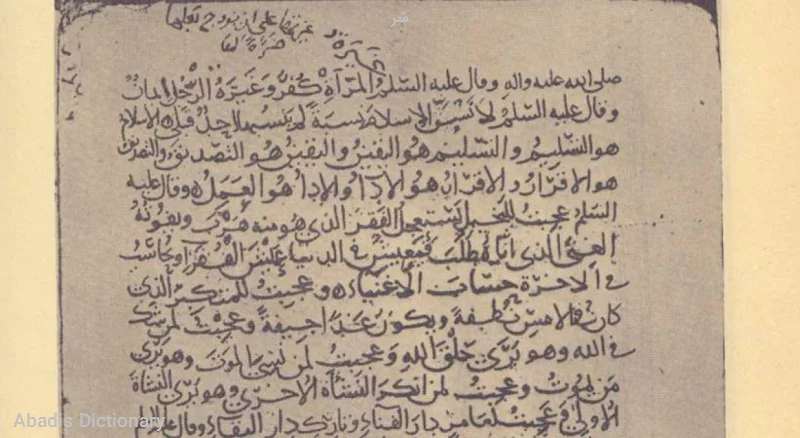 على ان يتزوج بعلها
غيرة
صلى الله عليه واله وقال عليه السلم المرأة كُفْرٌ وغَيْرَةُ الرَّجُلِ ايمانٌ
وقال عليه السّلمُ لاَنْسُبَنَّ الاِسلامَ نسبةً لم ينسبها احدٌ قبلى الاسلامُ
هو التسليمُ والتسليمُ هو اليقينُ واليقينُ هو التصديقُ والتصديقُ
هو الاقرارُ والاقرارُ هو الاداءُ والاداءُ هو العَمَلُ وقال عليه
السلم عجبتُ للبخيل يستعجل الفقرَ الذى هو منه هَرَبَ ويفوتُهُ
الغِنَى الذى اياه طَلَبَ فيعيشُ فى الدنيا عيْشَ الفُقَراءِ ويحاسَبُ
فى الاخرة حسابَ الاَغنياءِ وعجبتُ للمتكبّر الذى
كان بالامس نُطفةً ويكون غداً جيفةً وعجبْتُ لمن شكّ
فى الله وهو يَرَى خَلْقَ اللهِ وعَجبتُ لمن نسِىَ الموتَ وهو يَرَى
من يموتُ وعجبتُ لمن انكر النشاةَ الاُخرَى وهو يَرَى النشاةَ
الاولى وعَجبتُ لعامر دار الفناءِ وتاركٍ دار البقاءِ وقال عليه السلم
Abadis Dictionary